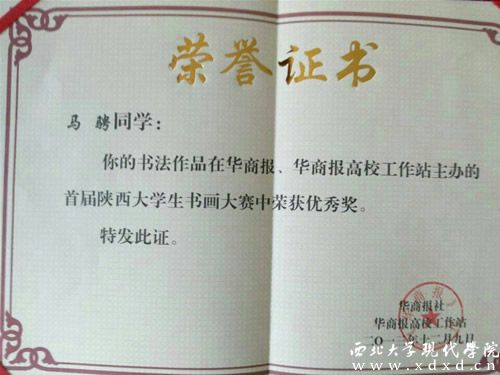 荣誉证书
马 骋同学：
你的书法作品在华商报、华商报高校工作站主办的
首届陕西大学生书画大赛中荣获优秀奖。
特发此证。
华商报社
华商报高校工作站
十二月九日
西北大学现代学院
www.xdxd.cn